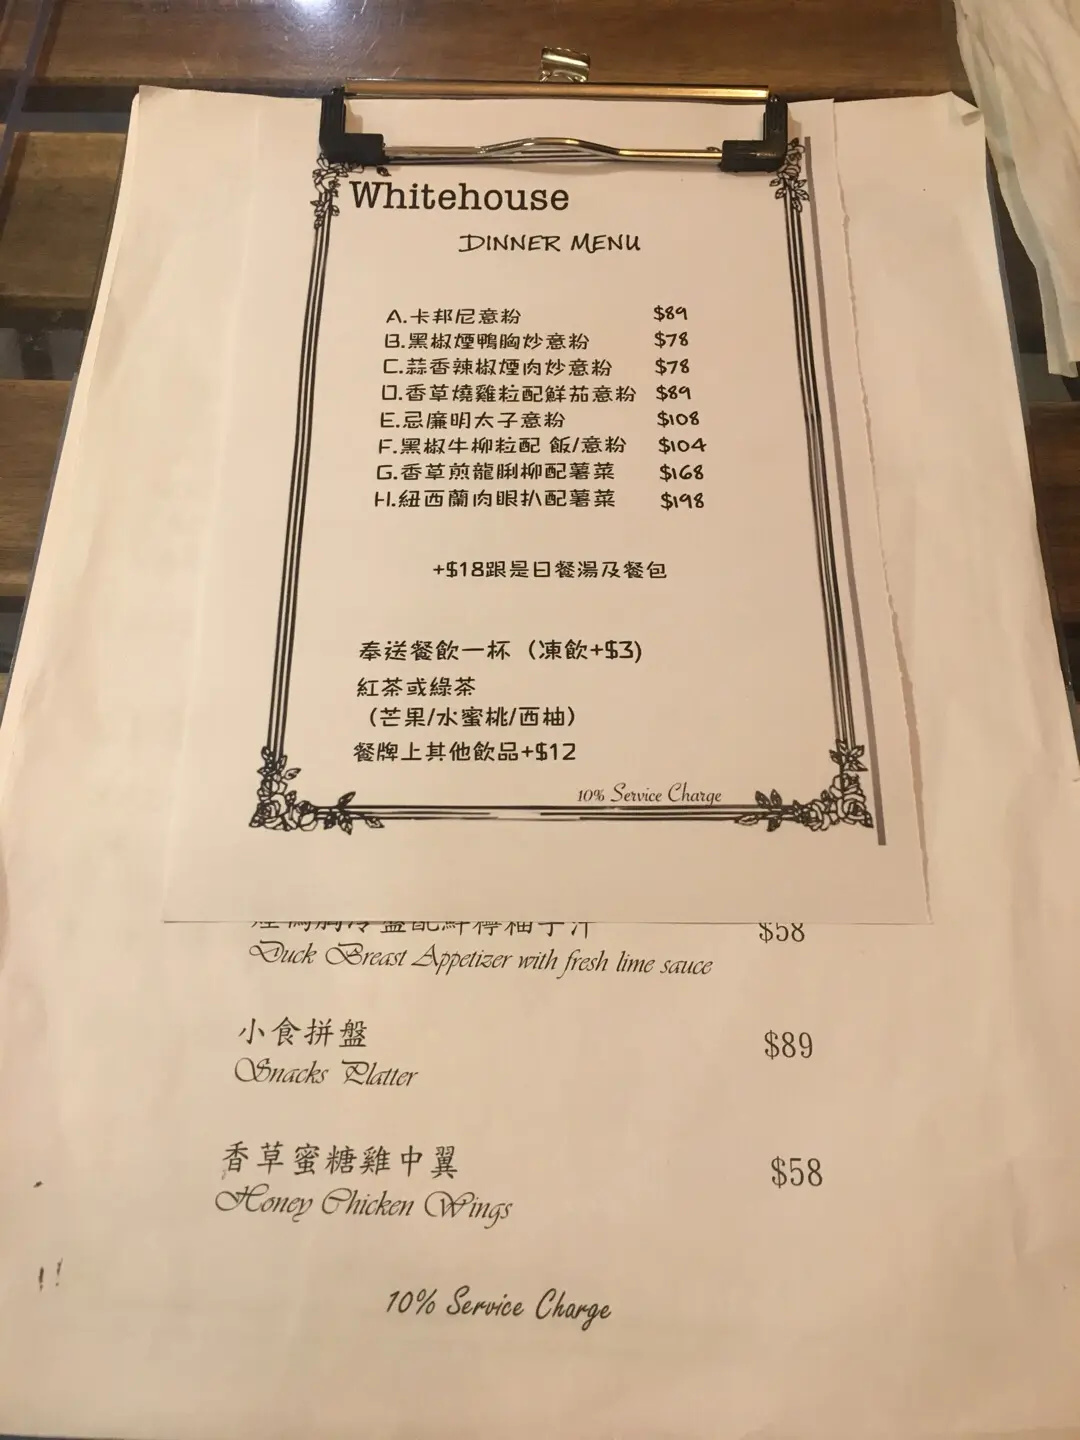 Whitehouse
DINNER MENU
A.卡邦尼意粉 $89
B.黑椒煙鴨胸炒意粉 $78
C.蒜香辣椒煙肉炒意粉 $78
D.香草燒雞粒配鮮茄意粉 $89
E.忌廉明太子意粉 $108
F.黑椒牛柳粒配 飯/意粉 $104
G.香草煎龍脷柳配薯菜 $168
H.紐西蘭肉眼扒配薯菜 $198
+$18跟是日餐湯及餐包
奉送餐飲一杯（凍飲+$3）
紅茶或綠茶
（芒果/水蜜桃/西柚）
餐牌上其他飲品+$12
10% Service Charge
煙鴨胸冷盤配鮮檸柚子汁 $58
Duck Breast Appetizer with fresh lime sauce
小食拼盤 $89
Snacks Platter
香草蜜糖雞中翼 $58
Honey Chicken Wings
10% Service Charge